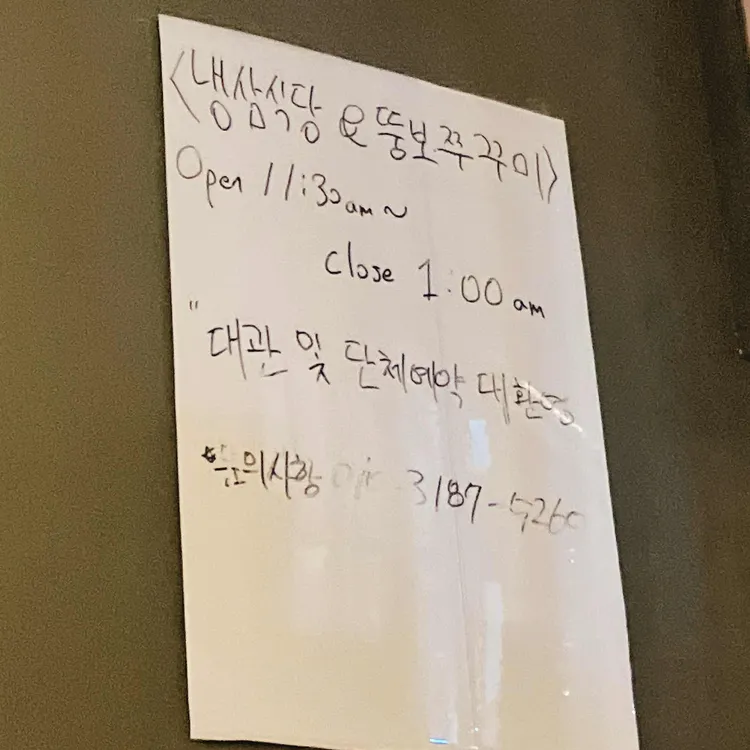 <냉삼식당 & 뚱보쭈꾸미>
Open 11:30am~
Close 1:00 am
"대관 및 단체예약 대환영
*문의사항 3187-5260